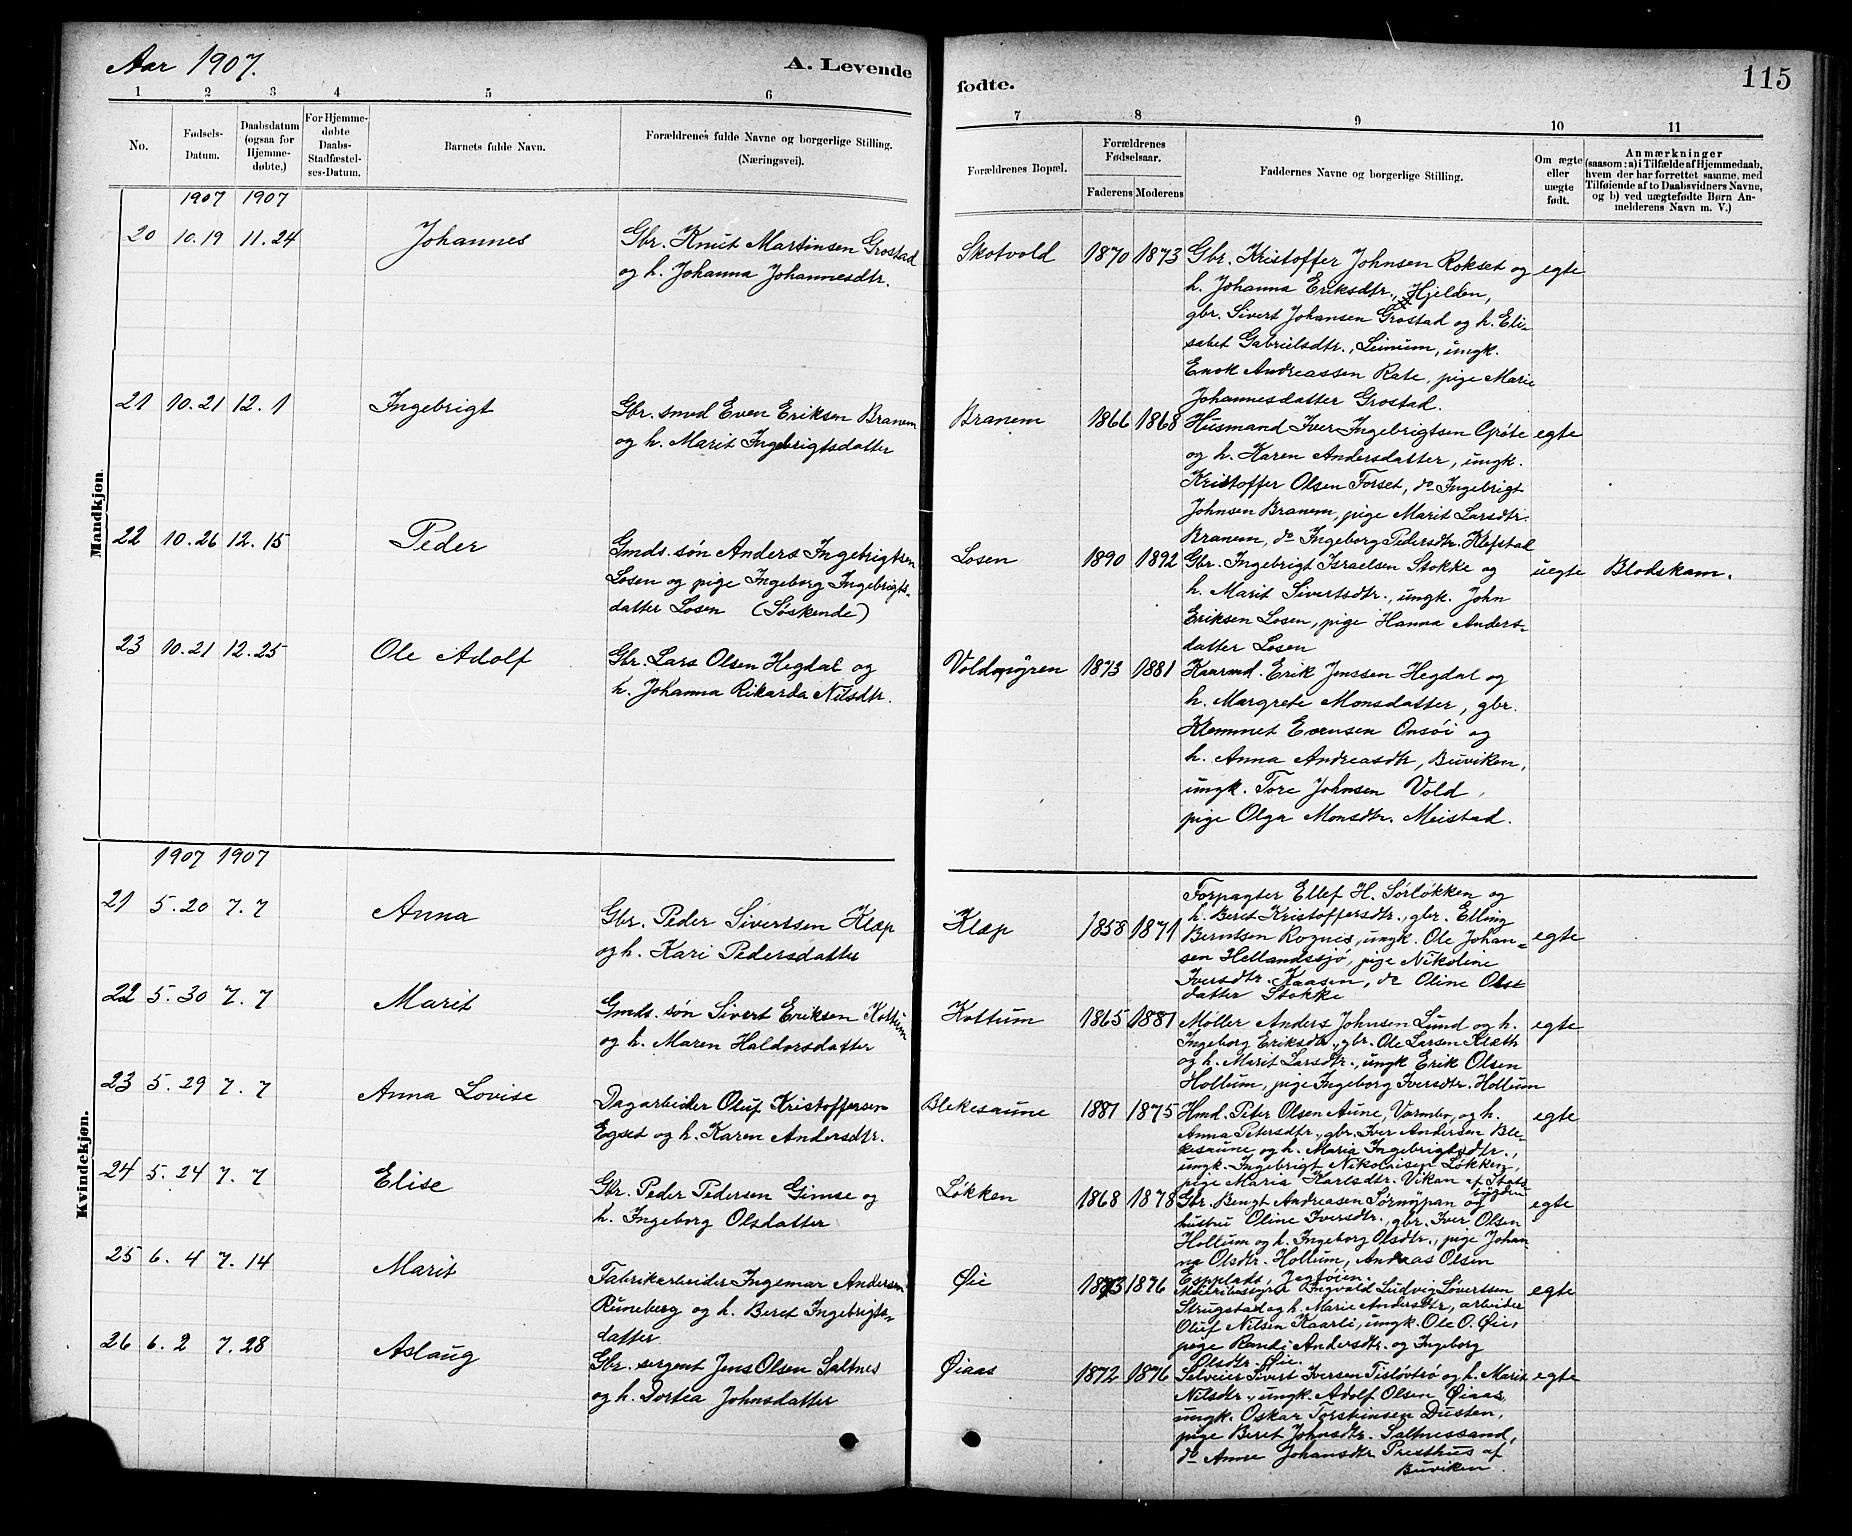 Aar 1907.
A. Levende
fødte.
115
1 2 3 4 5 6
7 8 9 10 11
No.
Fødsels-
Datum.
Daabsdatum
(ogsaa for
Hjemme-
døbte.)
For Hjemme-
døbte
Daabs-
Stadfæstel-
ses-Datum.
Barnets fulde Navn.
Forældrenes fulde Navne og borgerlige Stilling.
(Næringsvei).
Forældrenes Bopæl.
Forældrenes
Fødselsaar.
Faderens Moderens
Faddernes Navne og borgerlige Stilling.
Om ægte
eller
uægte
født.
Anmærkninger
(saasom: a) i Tilfælde af Hjemmedaab,
hvem der har forrettet samme, med
Tilføiende af to Daabsvidners Navne,
og b) ved uægtefødte Børn An-
melderens Navn m. V.)
Mandkjøn.
1907 1907
20 10.19 11.24 Johannes
Gbr. Knut Martinsen Grostad
og h. Johanna Johannesdtr.
Skotvold 1870 1873
Gbr. Kristoffer Johnsen Rokset og
h. Johanna Eriksdtr., Hjelden,
gbr. Sivert Johansen Grostad og h. Eli-
sabet Gabrielsdtr., Leinum, ungk.
Enok Andreassen Rate, pige Marie
Johannesdatter Grostad.
egte
21 10.21 12.1 Ingebrigt
Gbr. smed Even Eriksen Branem
og h. Marit Ingebrigtsdatter
Branem 1866 1868
Husmand Iver Ingebrigtsen Grøte
og h. Karen Andersdatter, ungk.
Kristoffer Olsen Forset, do Ingebrigt
Johnsen Branem, pige Marit Larsdtr.
Branem, do Ingeborg Pedersdtr. Klefstad
egte
22 10.26 12.15 Peder
Gmds. søn Anders Ingebrigtsen
Losen og pige Ingeborg Ingebrigts-
datter Losen (Søskende)
Losen 1890 1892
Gbr. Ingebrigt Israelsen Stokke og
h. Marit Sivertsdtr., ungk. John
Eriksen Losen, pige Hanna Anders-
datter Losen
uegte Blodskam.
23 10.21 12.25 Ole Adolf
Gbr. Lars Olsen Hegdal og
h. Johanna Rikarda Nilsdtr.
Voldmyren 1873 1881
Kaarmd. Erik Jenssen Hegdal og
h. Margrete Monsdatter, gbr.
Klemmet Evensen Onsøi og
h. Anna Andreasdtr, Buviken,
ungk. Tore Johnsen Vold,
pige Olga Monsdtr. Meistad.
Kvindekjøn.
1907 1907
21 5.20 7.7 Anna
Gbr. Peder Sivertsen Klæp
og h. Kari Pedersdatter
Klæp 1858 1871
Forpagter Ellef H. Sørløkken og
h. Beret Kristoffersdtr., gbr. Elling
Berntsen Rognes, ungk. Ole Johan-
sen Hellandssjø, pige Nikoline
Iversdtr. Kaasen, do Oline Ols-
datter Stokke
egte
22 5.30 7.7 Marit
Gmds. søn Sivert Eriksen Kottum
og h. Maren Haldorsdatter
Kottum 1865 1881
Møller Anders Johnsen Lund og h.
Ingeborg Eriksdtr., gbr. Ole Larsen Klæth
og h. Marit Larsdtr., ungk Erik Olsen
Hollum, pige Ingeborg Iversdtr. Hollum
egte
23 5.29 7.7 Anna Lovise
Dagarbeider Oluf Kristoffersen
Egset og h. Karen Andersdtr.
Blekesaune 1881 1875
Hmd. Peter Olsen Aune, Varmbo, og h.
Anna Petersdtr., gbr. Iver Andersen Ble-
kesaune og h. Maria Ingebrigtsdtr.,
ungk. Ingebrigt Nikolaisen Løkken,
pige Maria Karlsdtr. Vikan af Stads-
bygden
egte
24 5.24 7.7 Elise
Gbr. Peder Pedersen Gimse og
h. Ingeborg Olsdatter
Løkken 1868 1878
Gbr. Bengt Andreasen Sørnypan og
hustru Oline Iversdtr., gbr. Iver Olsen
Hollum og h. Ingeborg Olsdtr., pige Johan-
na Olsdtr. Hollum, Andreas Olsen
Espplads, Jegtøien.
egte
25 6.4 7.14 Marit
Fabrikarbeider Ingemar Andersen
Runeberg og h. Beret Ingebrigts-
datter
Øie 1873 1876
Meieribestyrer Ingvald Ludvig Sivertsen
Strugstad og h. Marie Andersdtr, arbeider
Oluf Nilsen Kaarli, ungk. Ole O. Øie,
pige Randi Andersdtr. og Ingeborg
Olsdtr. Øie.
egte
26 6.2 7.28 Aslaug
Gbr. sergent Jens Olsen Saltnes
og h. Dortea Johnsdatter
Øiaas 1872 1876
Selveier Sivert Iversen Tisløvtrø og h. Marit
Nilsdtr., ungk. Adolf Olsen Øiaas,
ungk. Oskar Torstinsen Dusten,
pige Beret Johnsdtr. Saltnessand,
do Anne Johansdtr Presthus af
Buviken.
egte